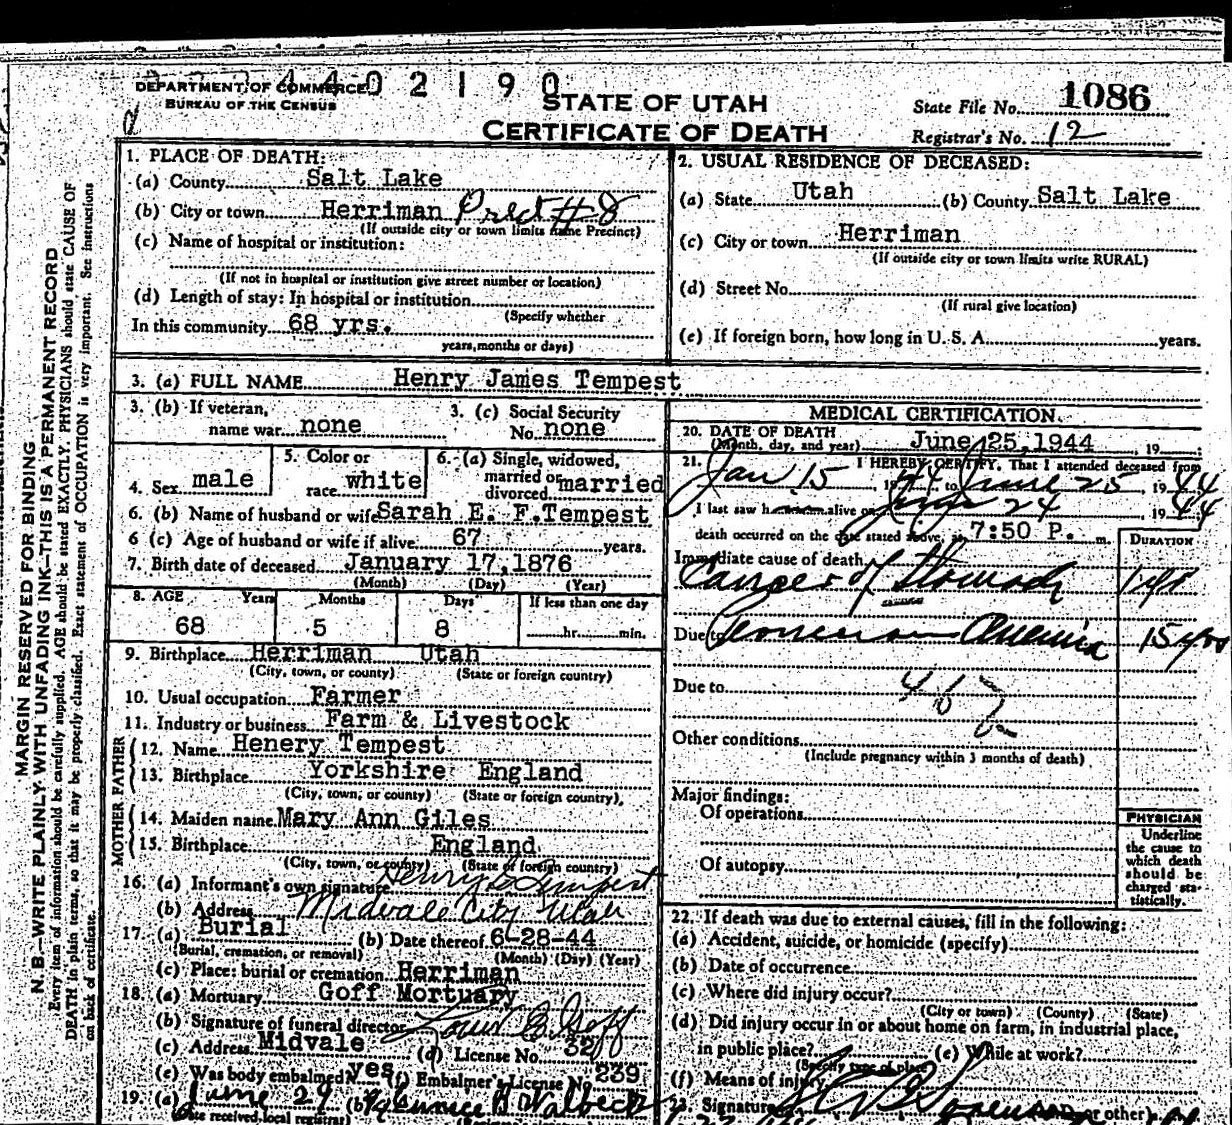 4402190
DEPARTMENT OF COMMERCE
BUREAU OF THE CENSUS
STATE OF UTAH
CERTIFICATE OF DEATH
State File No. 1086
Registrar's No. 12
MARGIN RESERVED FOR BINDING
N. B.—WRITE PLAINLY WITH UNFADING INK—THIS IS A PERMANENT RECORD
Every item of information should be carefully supplied. AGE should be stated EXACTLY. PHYSICIANS should state CAUSE OF
DEATH in plain terms, so that it may be properly classified. Exact statement of OCCUPATION is very important. See instructions
on back of certificate.
1. PLACE OF DEATH:
(a) County Salt Lake
(b) City or town Herriman Prect #8
(If outside city or town limits name Precinct)
(c) Name of hospital or institution:
(If not in hospital or institution give street number or location)
(d) Length of stay: In hospital or institution
(Specify whether
In this community 68 yrs.
years, months or days)
2. USUAL RESIDENCE OF DECEASED:
(a) State Utah (b) County Salt Lake
(c) City or town Herriman
(If outside city or town limits write RURAL)
(d) Street No.
(If rural give location)
(e) If foreign born, how long in U. S. A. years.
3. (a) FULL NAME Henry James Tempest
3. (b) If veteran,
name war none
3. (c) Social Security
No. none
4. Sex male
5. Color or
race white
6. (a) Single, widowed,
married or
divorced married
6. (b) Name of husband or wife Sarah E. F. Tempest
6 (c) Age of husband or wife if alive 67 years.
7. Birth date of deceased January 17, 1876
(Month) (Day) (Year)
8. AGE Years Months Days If less than one day
68 5 8 hr. min.
9. Birthplace Herriman Utah
(City, town, or county) (State or foreign country)
10. Usual occupation Farmer
11. Industry or business Farm & Livestock
FATHER
12. Name Henery Tempest
13. Birthplace Yorkshire England
(City, town, or county) (State or foreign country)
MOTHER
14. Maiden name Mary Ann Giles
15. Birthplace England
(City, town, or county) (State or foreign country)
16. (a) Informant's own signature Henry Tempest
(b) Address Midvale City Utah
17. (a) Burial (b) Date thereof 6-28-44
(Burial, cremation, or removal) (Month) (Day) (Year)
(c) Place: burial or cremation Herriman
18. (a) Mortuary Goff Mortuary
(b) Signature of funeral director Goff
(c) Address Midvale (d) License No. 32
(e) Was body embalmed yes (f) Embalmer's License No. 239
19. (a) June 29 (b)
Date received local registrar)
MEDICAL CERTIFICATION.
20. DATE OF DEATH
(Month, day, and year) June 25, 1944 , 19
21. I HEREBY CERTIFY, That I attended deceased from
Jan 15, 1944, to June 25, 1944
I last saw h alive on June 24, 1944
death occurred on the date stated above, at 7:50 P. m.
DURATION
Immediate cause of death
Cancer of Stomach 1 yr
Due to Anemia 15 yrs
Due to 46
Other conditions
(Include pregnancy within 3 months of death)
Major findings:
Of operations
Of autopsy
PHYSICIAN
Underline
the cause to
which death
should be
charged sta-
tistically.
22. If death was due to external causes, fill in the following:
(a) Accident, suicide, or homicide (specify)
(b) Date of occurrence
(c) Where did injury occur?
(City or town) (County) (State)
(d) Did injury occur in or about home on farm, in industrial place,
in public place? (e) While at work?
(Specify type of place)
(f) Means of injury
23. Signature or other)